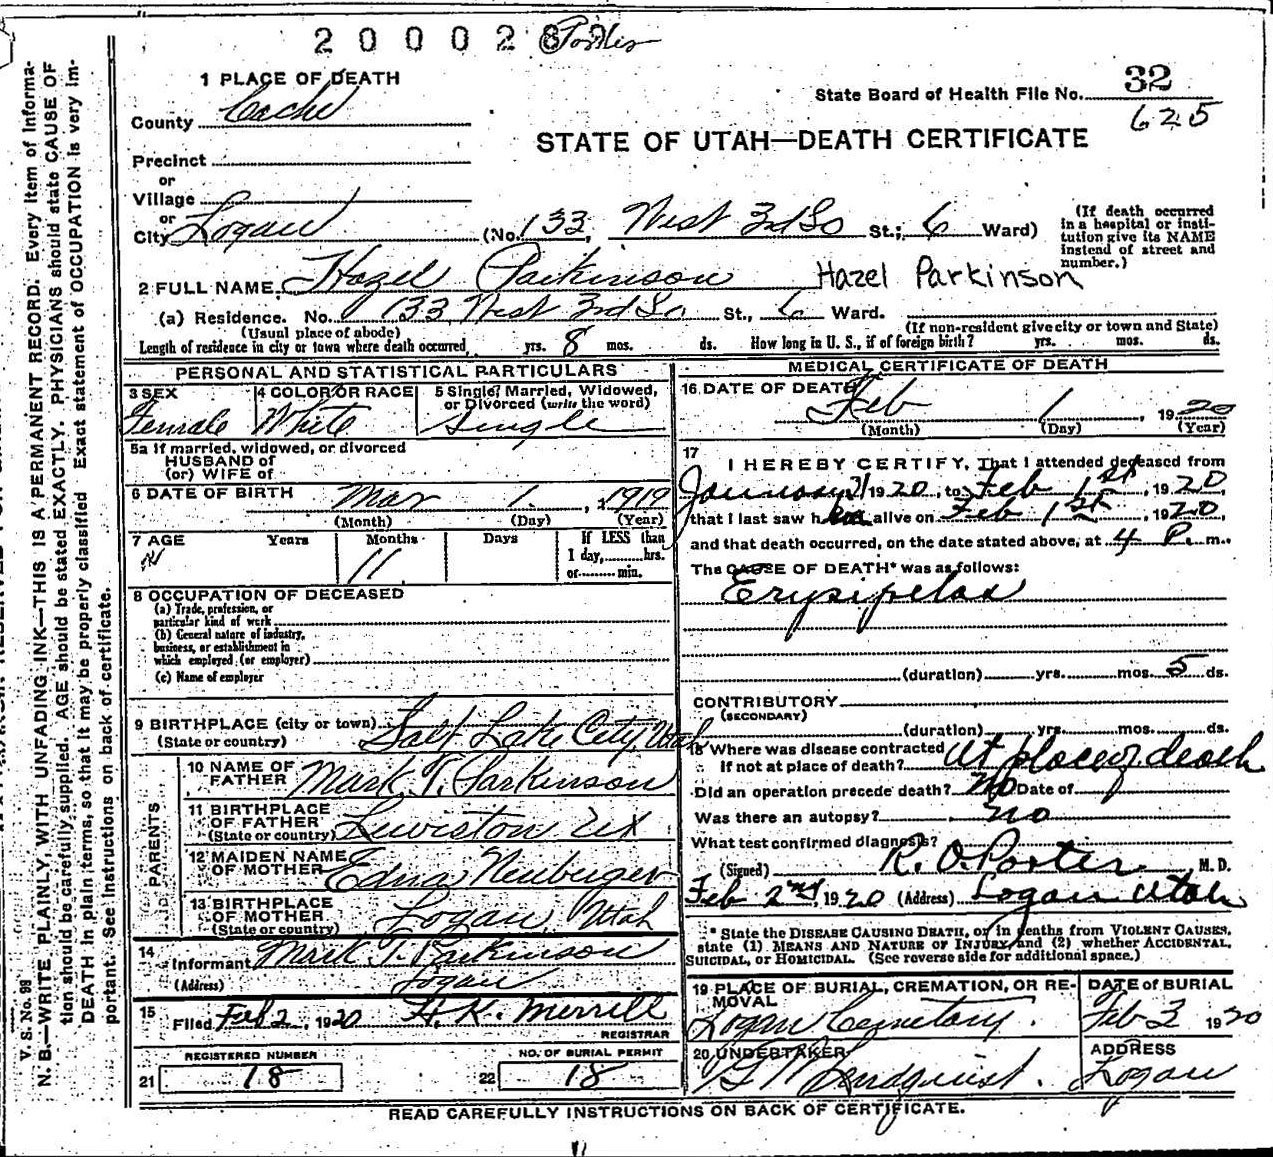 2 0 0 0 2 8
Porter
1 PLACE OF DEATH
State Board of Health File No. 32
625
County Cache
STATE OF UTAH—DEATH CERTIFICATE
Precinct
or
Village
or
City Logan (No. 133, West 3rd So St.; 6 Ward) (If death occurred in a hospital or institution give its NAME instead of street and number.)
2 FULL NAME Hazel Parkinson Hazel Parkinson
(a) Residence. No. 133 West 3rd So St., 6 Ward.
(Usual place of abode) (If non-resident give city or town and State)
Length of residence in city or town where death occurred, yrs. 8 mos. ds. How long in U. S., if of foreign birth? yrs. mos. ds.
PERSONAL AND STATISTICAL PARTICULARS
3 SEX Female
4 COLOR OR RACE White
5 Single, Married, Widowed, or Divorced (write the word) Single
5a If married, widowed, or divorced
HUSBAND of
(or) WIFE of
6 DATE OF BIRTH Mar 1, 1919
(Month) (Day) (Year)
7 AGE Years Months Days If LESS than
1 day, hrs.
or min.
11
8 OCCUPATION OF DECEASED
(a) Trade, profession, or
particular kind of work
(b) General nature of industry,
business, or establishment in
which employed (or employer)
(c) Name of employer
9 BIRTHPLACE (city or town) Salt Lake City, Utah
(State or country)
PARENTS
10 NAME OF FATHER Mark T. Parkinson
11 BIRTHPLACE OF FATHER Lewiston
(State or country)
12 MAIDEN NAME OF MOTHER Edna Neuberger
13 BIRTHPLACE OF MOTHER Logan, Utah
(State or country)
14 Informant Mark T. Parkinson
(Address) Logan
15 Filed Feb 2, 1920 H. K. Merrill
REGISTRAR
REGISTERED NUMBER
21 18
NO. OF BURIAL PERMIT
22 18
MEDICAL CERTIFICATE OF DEATH
16 DATE OF DEATH
Feb 1, 1920
(Month) (Day) (Year)
17
I HEREBY CERTIFY, That I attended deceased from
January 31 1920, to Feb 1st, 1920,
that I last saw her alive on Feb 1st, 1920,
and that death occurred, on the date stated above, at 4 P. m.
The CAUSE OF DEATH* was as follows:
Erysipelas
(duration) yrs. mos. 5 ds.
CONTRIBUTORY
(SECONDARY)
(duration) yrs. mos. ds.
18 Where was disease contracted
If not at place of death? At place of death
Did an operation precede death? No Date of
Was there an autopsy? no
What test confirmed diagnosis?
(Signed) R. O. Porter M. D.
Feb 2nd, 1920 (Address) Logan Utah
* State the DISEASE CAUSING DEATH, or in deaths from VIOLENT CAUSES,
state (1) MEANS AND NATURE OF INJURY, and (2) whether ACCIDENTAL,
SUICIDAL, or HOMICIDAL. (See reverse side for additional space.)
19 PLACE OF BURIAL, CREMATION, OR REMOVAL
Logan Cemetary.
DATE of BURIAL
Feb 3 1920
20 UNDERTAKER
Lindquist.
ADDRESS
Logan
READ CAREFULLY INSTRUCTIONS ON BACK OF CERTIFICATE.
V. S. No. 98
N. B.—WRITE PLAINLY, WITH UNFADING INK—THIS IS A PERMANENT RECORD. Every item of informa-
tion should be carefully supplied. AGE should be stated EXACTLY. PHYSICIANS should state CAUSE OF
DEATH in plain terms, so that it may be properly classified. Exact statement of OCCUPATION is very im-
portant. See instructions on back of certificate.